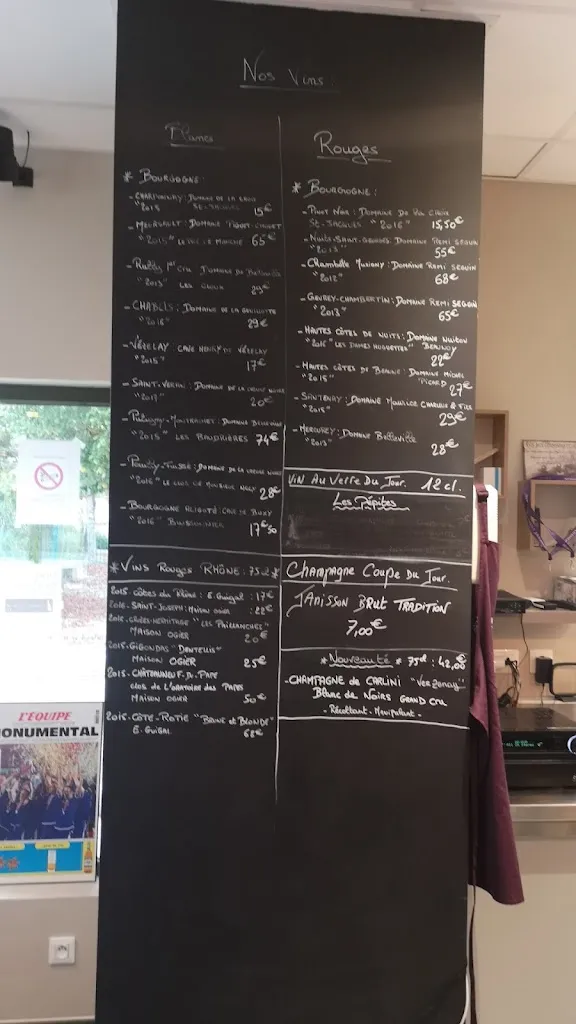 Nos Vins
Blancs
* BOURGOGNE:
- CHARDONNAY: DOMAINE DE LA
ST-JACQUES
"2015" 15€
- MEURSAULT: DOMAINE
"2015" 65€
- Rully 1er Cru DOMAINE DE Belleville
"2013" LES CLOUX 29€
- CHABLIS: DOMAINE DE LA
"2016" 29€
- VÉZELAY: CAVE HENRY DE VÉZELAY
"2015" 17€
- SAINT-VERAN: DOMAINE DE LA CROIX
20€
- Puligny-Montrachet: DOMAINE
"2015" LES 74€
- Pouilly-Fuissé: DOMAINE DE LA CROIX
"2016" LE CLOS DE MONSIEUR NOLY 28€
- BOURGOGNE ALIGOTÉ: CAVE DE BUXY
"2016" BUISSONNIER 17€50
Rouges
* BOURGOGNE:
- PINOT NOIR: DOMAINE De La Croix
St-JACQUES "2016" 15,50€
- NUITS-SAINT-GEORGES: DOMAINE REMI SEGUIN
"2013" 55€
- Chambolle Musigny: DOMAINE REMI SEGUIN
"2012" 68€
- GEVREY-CHAMBERTIN: DOMAINE REMI SEGUIN
"2013" 65€
- HAUTES CÔTES DE NUITS: DOMAINE
"2016" "LES DAMES HUGUETTES" 22€
- HAUTES CÔTES DE BEAUNE: DOMAINE MICHEL
"2015" PICARD 27€
- SANTENAY: DOMAINE MAURICE CHARLEUX & FILS
"2015" 29€
- MERCUREY: DOMAINE Belleville
"2013" 28€
VIN AU VERRE DU JOUR. 12cl.
Les Pépites
* VINS Rouges RHÔNE: 75cl *
2015. Côtes du Rhône: E. Guigal: 17€
2016. SAINT-JOSEPH: MAISON OGIER: 22€
2016. CROZES-HERMITAGE "LES PAILLANCHES"
MAISON OGIER 20€
2015. GIGONDAS "DENTELLIS"
MAISON OGIER 25€
2015. CHÂTEAUNEUF-D-PAPE
clos de L'ORATOIRE des PAPES
MAISON OGIER 50€
2015. CÔTE-ROTIE "BRUNE et BLONDE"
E. GUIGAL 68€
CHAMPAGNE COUPE DU JOUR.
JANISSON BRUT TRADITION
7,00€
* Nouveauté * 75cl: 42,00€
- CHAMPAGNE de CARLINI "Verzenay"
Blanc de Noirs GRAND CRU
- Récoltant-Manipulant -
L'ÉQUIPE
MONUMENTAL